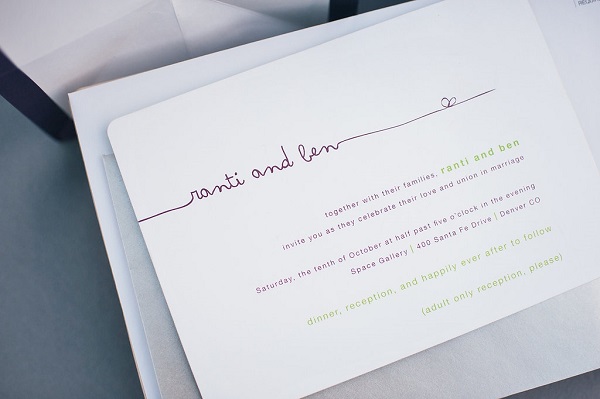 ranti and ben
together with their families, ranti and ben
invite you as they celebrate their love and union in marriage
Saturday, the tenth of October at half past five o'clock in the evening
Space Gallery | 400 Santa Fe Drive | Denver CO
dinner, reception, and happily ever after to follow
(adult only reception, please)